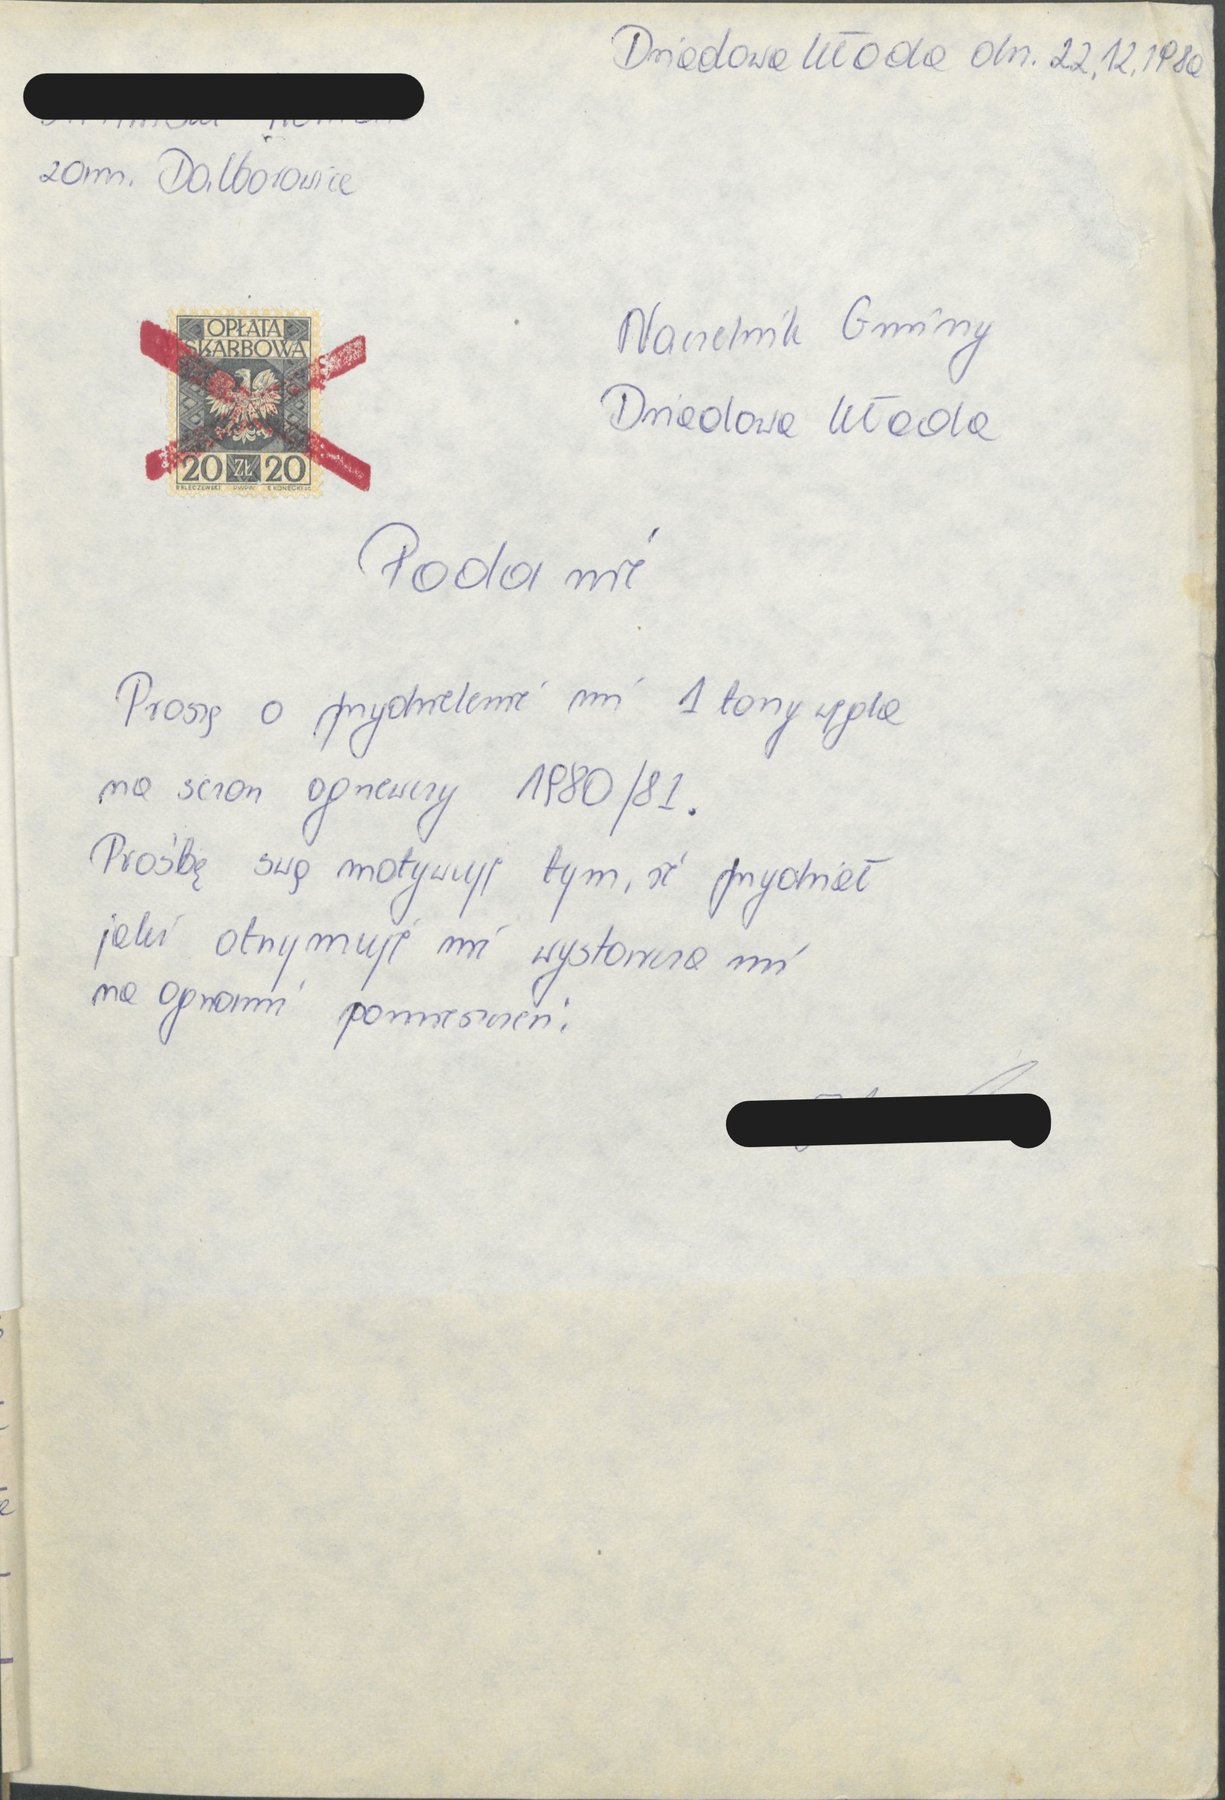 Dziadowa Kłoda dn. 22.12.1980
zam. Dalborowice
OPŁATA
SKARBOWA
20 ZŁ 20
Naczelnik Gminy
Dziadowa Kłoda
Podanie
Proszę o przydzielenie mi 1 tony węgla
na sezon ogrzewczy 1980/81.
Prośbę swą motywuję tym, że przydział
jaki otrzymuję nie wystarcza mi
na ogrzanie pomieszczeń.